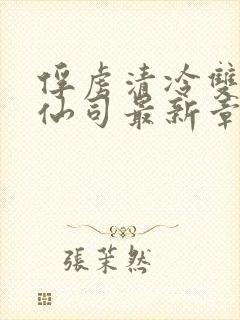 俘虏清冷雙
仙司最新章
張茉然